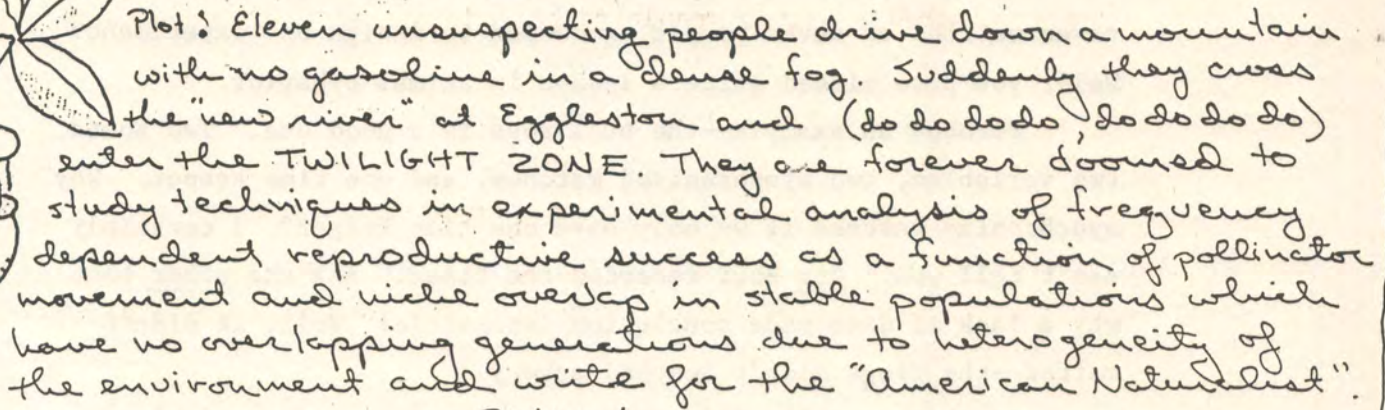 Plot: Eleven unsuspecting people drive down a mountain
with no gasoline in a dense fog Suddenly they cross
the "new river" at Eggleston and (do do do do, do do do do)
enter the TWILIGHT ZONE. They are forever doomed to
study techniques in experimental analysis of frequency
dependent reproductive success as a function of pollinator
movement and niche overlap in stable populations which
have no overlapping generations due to heterogeneity of
the environment and write for the "American Naturalist".